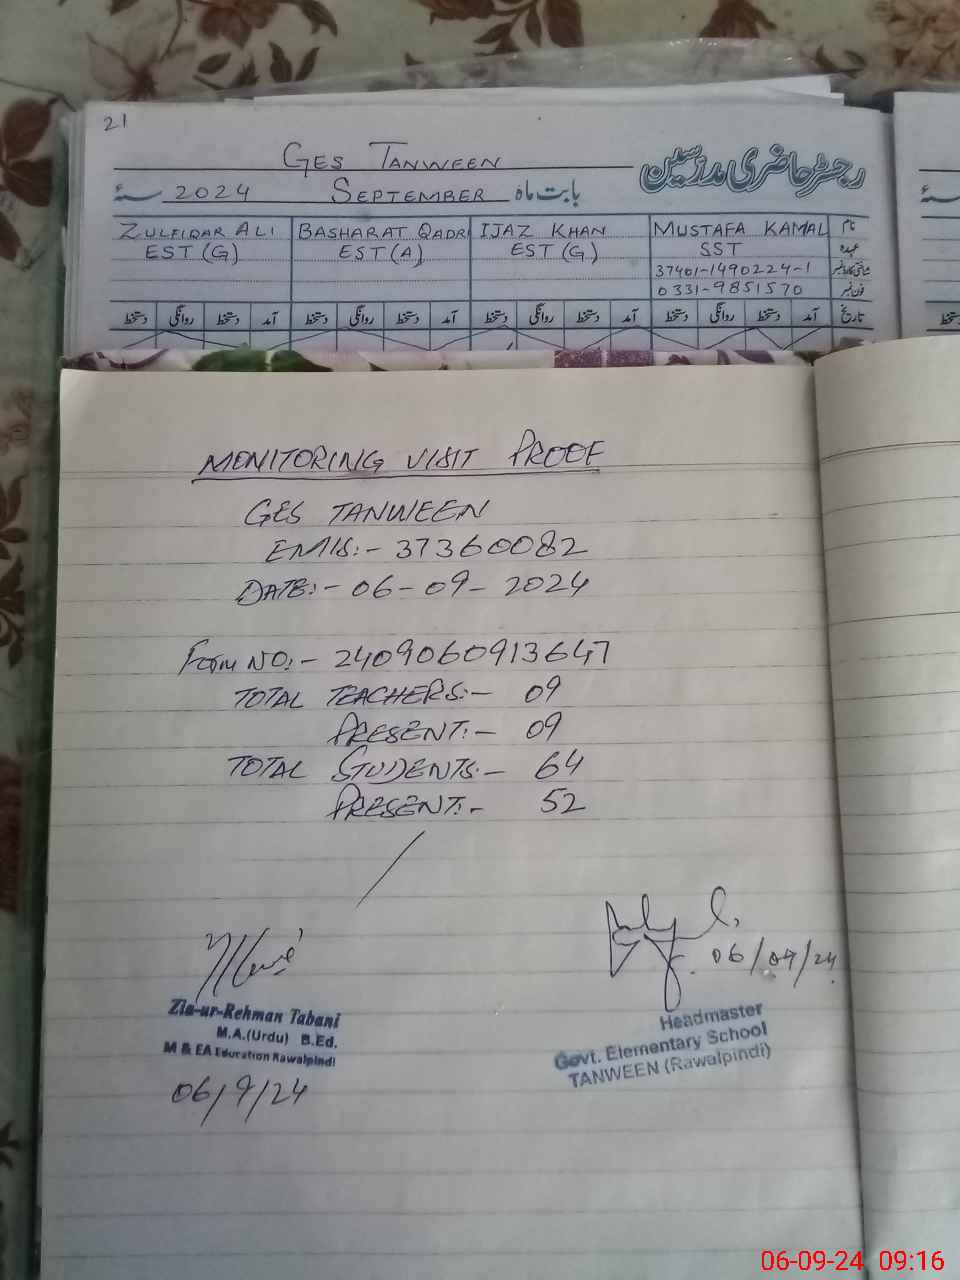 21
GES TANWEEN
رجسٹر حاضری مدرسین
2024 سنۂ SEPTEMBER بابت ماہ
ZULFIQAR ALI BASHARAT QADRI IJAZ KHAN MUSTAFA KAMAL نام
EST (G) EST (A) EST (G) SST عہدہ
37401-1490224-1 شناختی کارڈ نمبر
0331-9851570 فون نمبر
دستخط روانگی دستخط آمد دستخط روانگی دستخط آمد دستخط روانگی دستخط آمد دستخط روانگی دستخط آمد تاریخ
MONITORING VISIT PROOF
GES TANWEEN
EMIS:- 37360082
DATE:- 06-09-2024
Form NO:- 2409060913647
TOTAL TEACHERS:- 09
PRESENT:- 09
TOTAL STUDENTS:- 64
PRESENT:- 52
06/09/24
Zia-ur-Rehman Tabani
M.A.(Urdu) B.Ed.
M & EA Education Rawalpindi
06/9/24
Headmaster
Govt. Elementary School
TANWEEN (Rawalpindi)
06-09-24 09:16